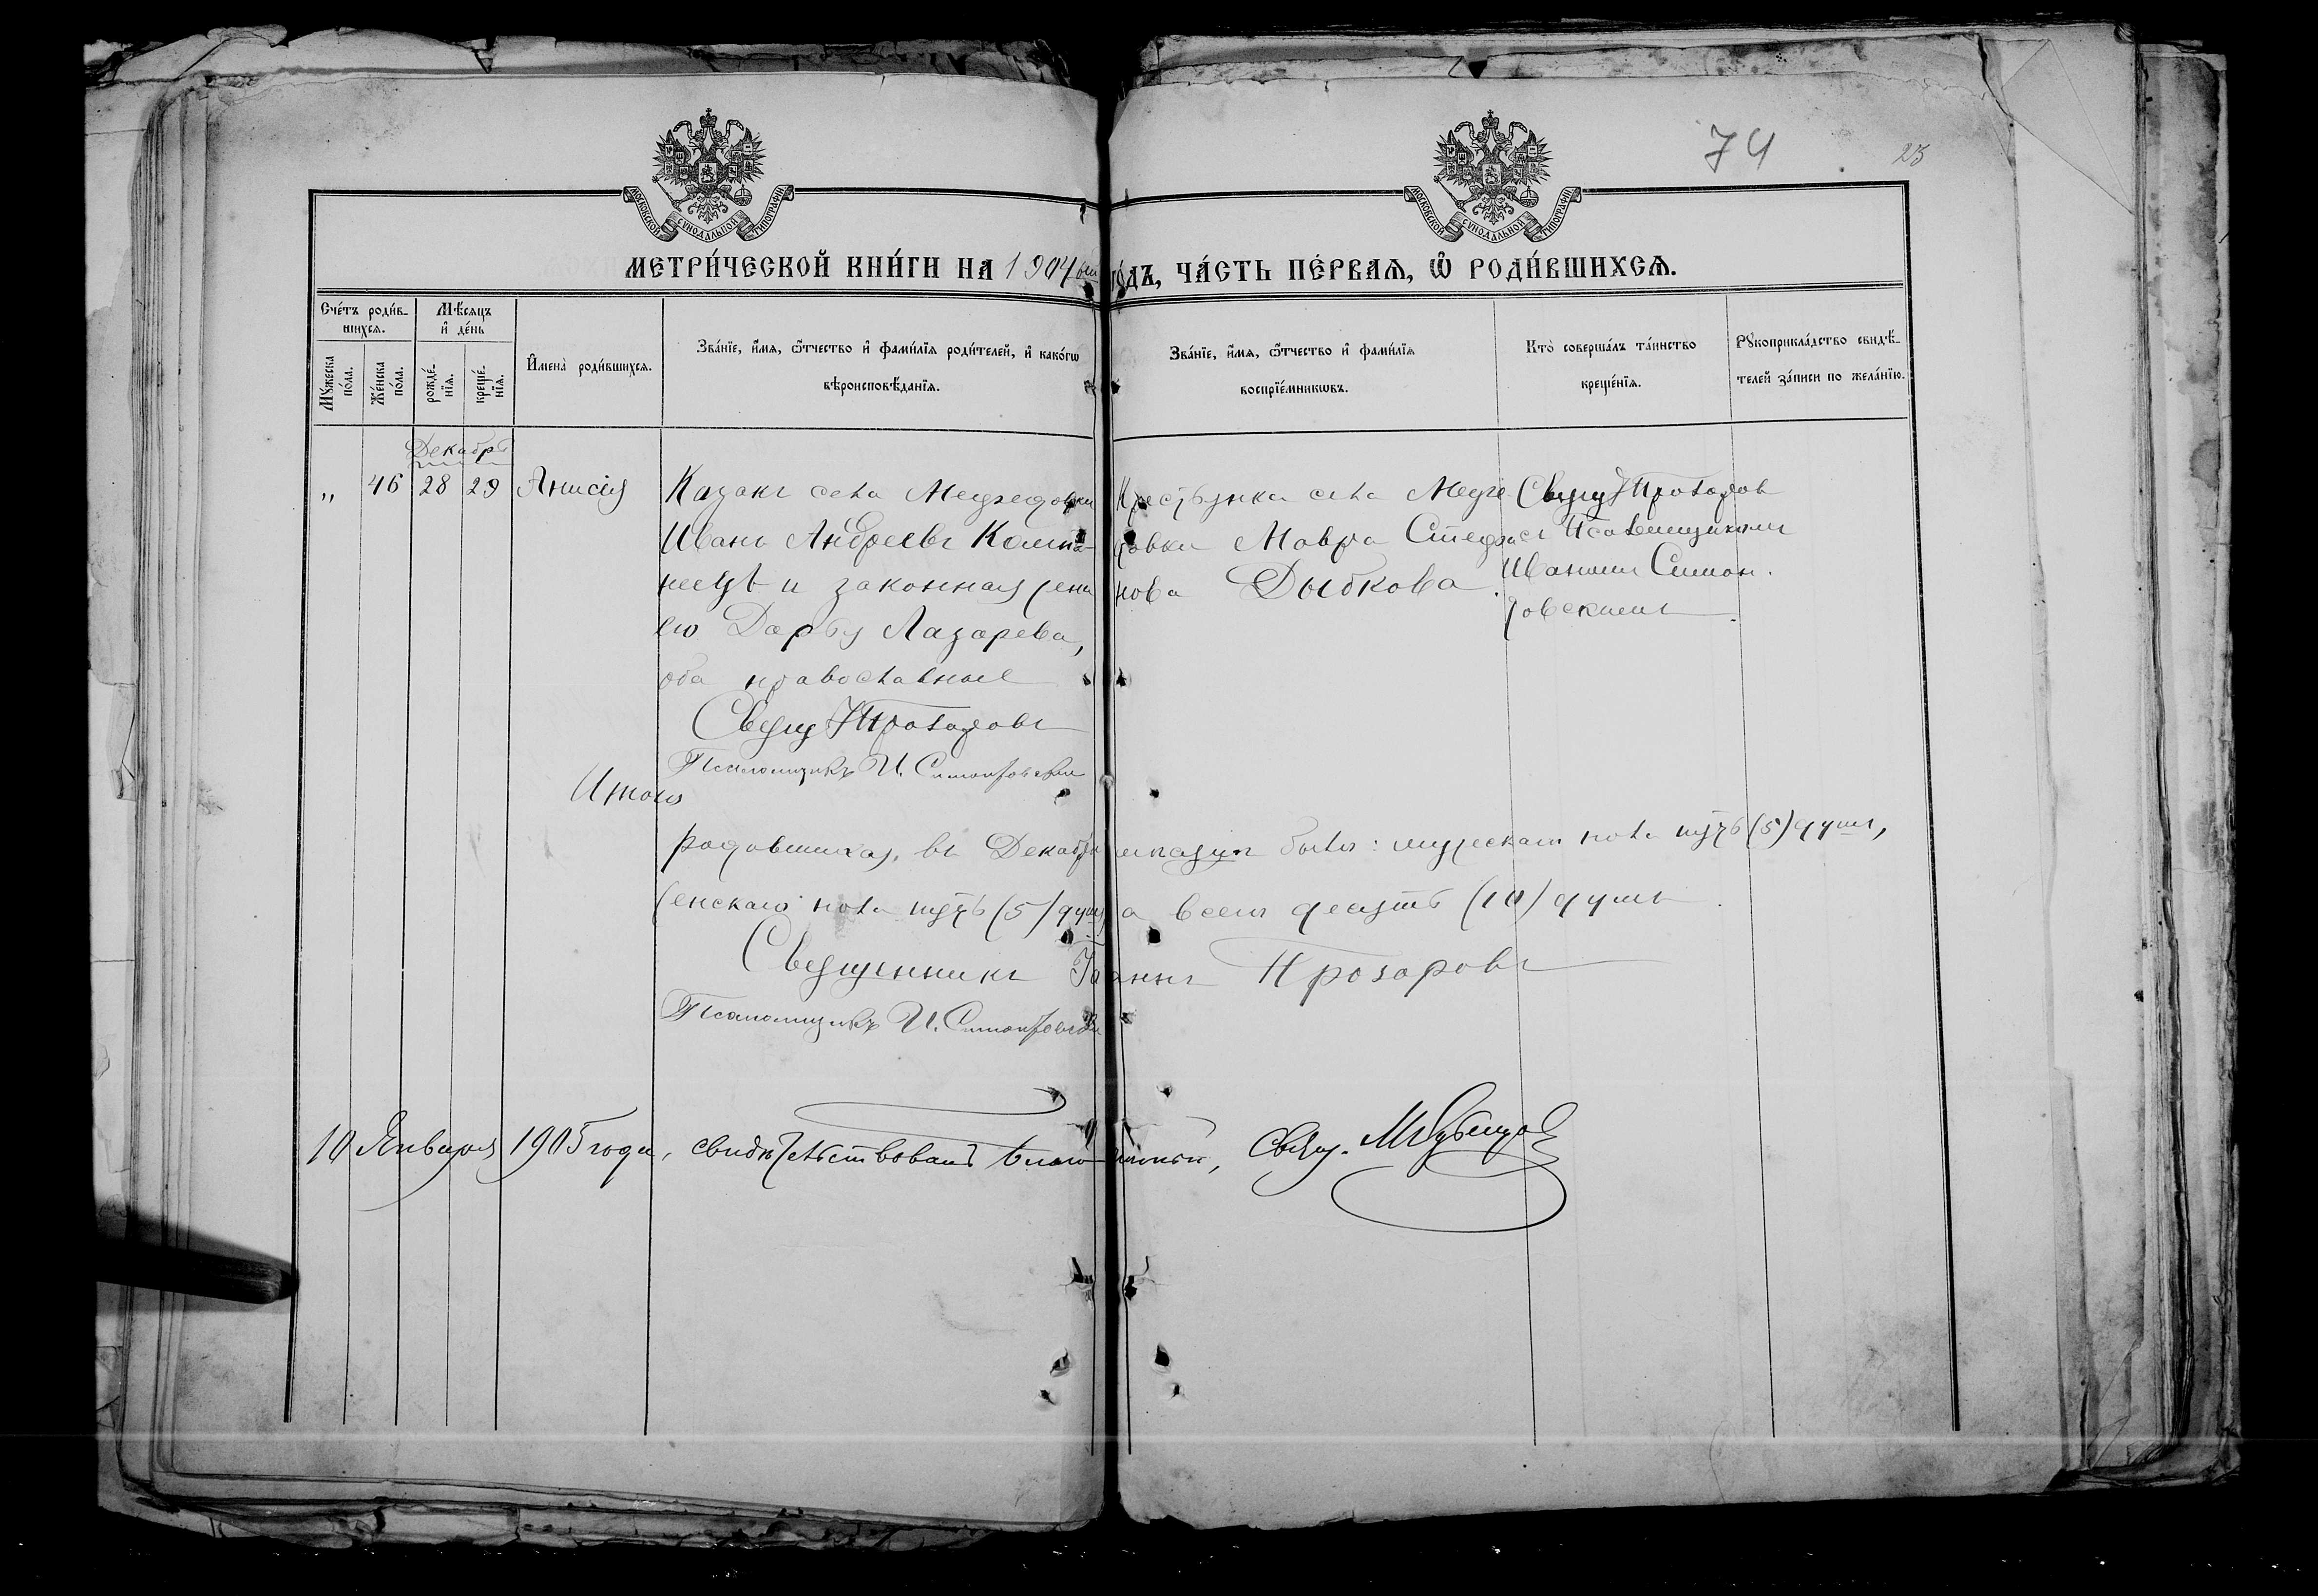 74
23
МОСКОВСКОЙ СѴНОДАЛЬНОЙ ТИПОГРАФІИ
МОСКОВСКОЙ СѴНОДАЛЬНОЙ ТИПОГРАФІИ
МЕТРИ́ЧЕСКОЙ КНИ́ГИ НА 1904 ый го́дъ, ЧА́СТЬ ПЕ́РВАѦ, Ѿ РОДИ́ВШИХСѦ.
Счётъ роди́в-
шихсѧ.
Мꙋ́жеска
по́ла.
Же́нска
по́ла.
Мѣ́сѧцъ
и҆ де́нь
рожде́-
нїѧ.
креще́-
нїѧ.
И҆мена̀ роди́вшихсѧ.
Зва́нїе, и҆́мѧ, ѻ҆́тчество и҆ фами́лїѧ роди́телей, и҆ како́гѡ
вѣроисповѣ́данїѧ.
Зва́нїе, и҆́мѧ, ѻ҆́тчество и҆ фами́лїѧ
воспрїе́мникѡвъ.
Кто̀ соверша́лъ та́инство
креще́нїѧ.
Рꙋкоприкла́дство свидѣ́-
телей за́писи по жела́нїю.
Декабрь
" 46 28 29 Анисія
Казакъ села
Иванъ Андреевъ
и законная жена
его Дарья Лазарева,
оба православные
Свящ. І Прозаровъ
Псаломщикъ И.
Крестьянка села
Мавра Стефа
нова Дыбкова.
Свящ І Прозаров
съ Псаломщикомъ
Иваномъ Симон.
товскимъ.
Итого
родившихся, въ Декабрѣ мѣсяцѣ было: мужескаго пола пять (5) душъ,
женскаго пола пять (5) душъ а всего десять (10) душъ.
Священникъ Іоаннъ Прозаровъ
Псаломщикъ И.
10 Января 1905 года, свидѣтельствовалъ благочинный, Свящ.